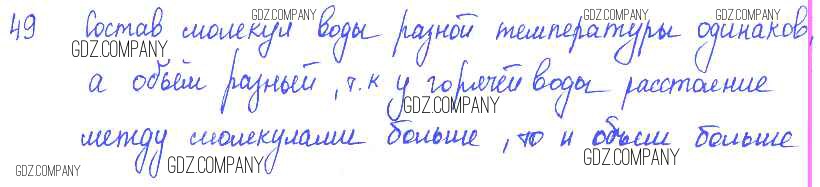 49 Состав молекул воды разной температуры одинаков,
а объём разный, т.к у горячей воды расстояние
между молекулами больше, то и объем больше
GDZ.COMPANY
GDZ.COMPANY
GDZ.COMPANY
GDZ.COMPANY
GDZ.COMPANY
GDZ.COMPANY
GDZ.COMPANY
GDZ.COMPANY